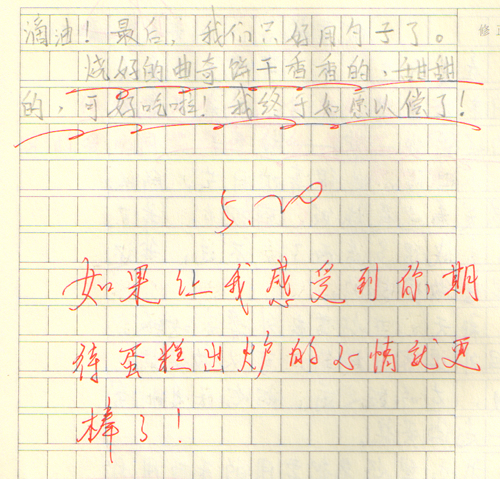 滴油！最后，我们只好用勺子了。
烧好的曲奇饼干香香的，甜甜
的，可好吃啦！我终于如愿以偿了！
5.20
如果让我感受到你期
待蛋糕出炉的心情就更
棒了！